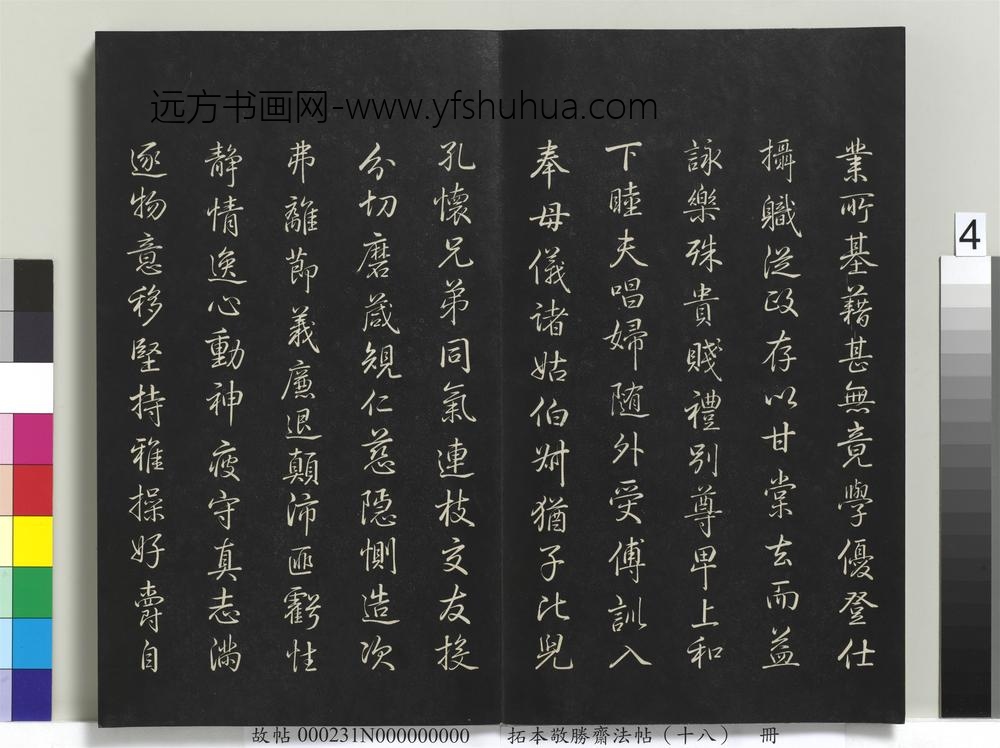 远方书画网-www.yfshuhua.com
業所基藉甚無竟學優登仕
攝職從政存以甘棠去而益
詠樂殊貴賤禮別尊卑上和
下睦夫唱婦随外受傅訓入
奉母儀諸姑伯叔猶子比兒
孔懷兄弟同氣連枝交友投
分切磨箴規仁慈隐惻造次
弗離節義廉退顛沛匪虧性
静情逸心動神疲守真志滿
逐物意移堅持雅操好爵自
4
故帖 000231N000000000 拓本敬勝齋法帖（十八） 冊